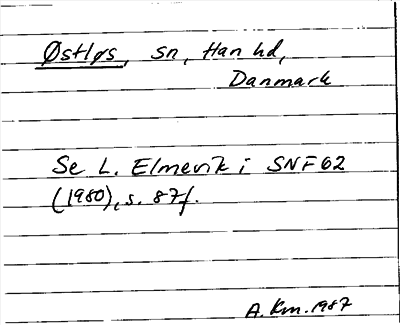 Østløs, sn, Han hd,
Danmark
Se L. Elmevik i SNF 62
(1980), s. 87f.
A. Km. 1987